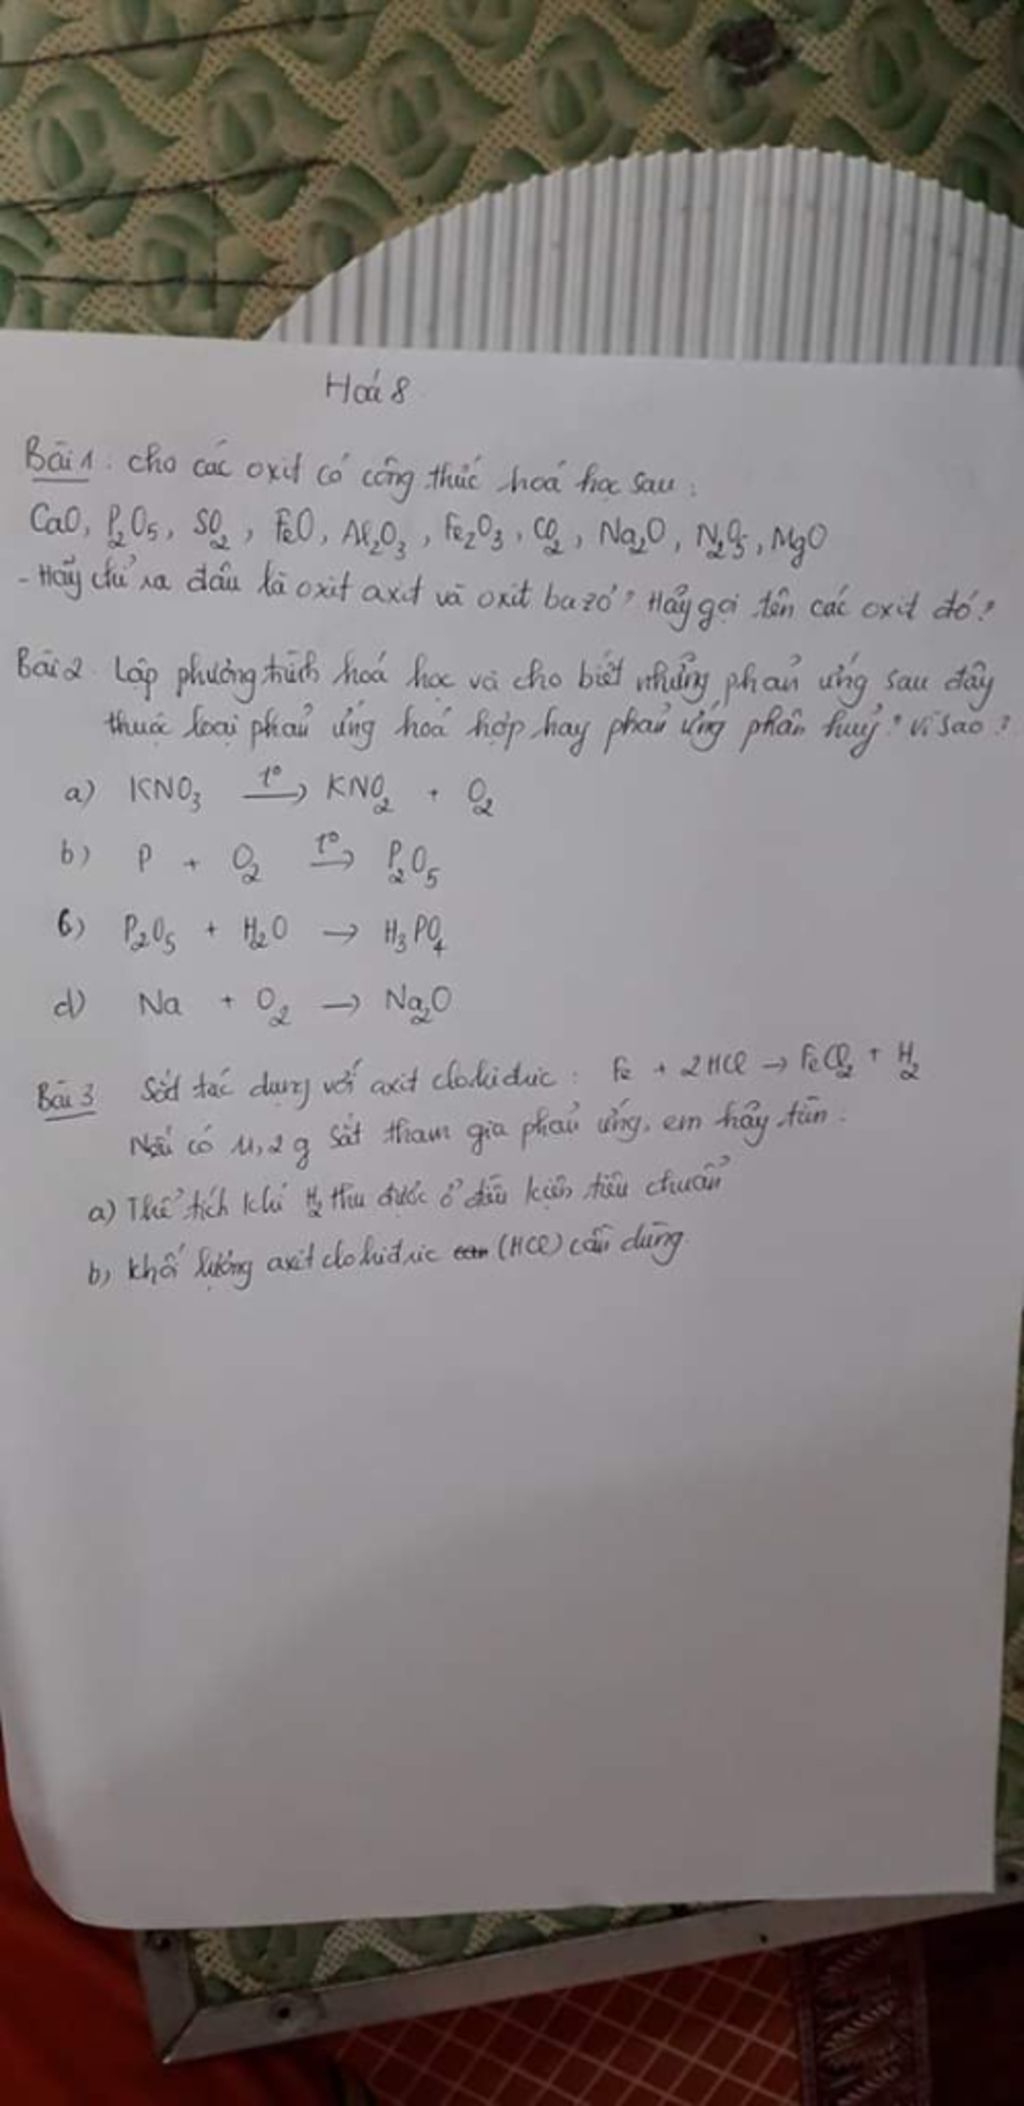 Hoá 8
Bài 1: cho các oxit có công thức hoá học sau:
CaO, P₂O₅, SO₂, FeO, Al₂O₃, Fe₂O₃, CO₂, Na₂O, N₂O₅, MgO
- Hãy chỉ ra đâu là oxit axit và oxit bazơ? Hãy gọi tên các oxit đó?
Bài 2. Lập phương trình hoá học và cho biết những phản ứng sau đây
thuộc loại phản ứng hoá hợp hay phản ứng phân huỷ? Vì sao?
a) KNO₃ t°→ KNO₂ + O₂
b) P + O₂ t°→ P₂O₅
6) P₂O₅ + H₂O → H₃PO₄
d) Na + O₂ → Na₂O
Bài 3 Sắt tác dụng với axit clohiđric: Fe + 2HCl → FeCl₂ + H₂
Nếu có 11,2 g sắt tham gia phản ứng, em hãy tìm:
a) Thể tích khí H₂ thu được ở điều kiện tiêu chuẩn
b) Khối lượng axit clohiđric (HCl) cần dùng.